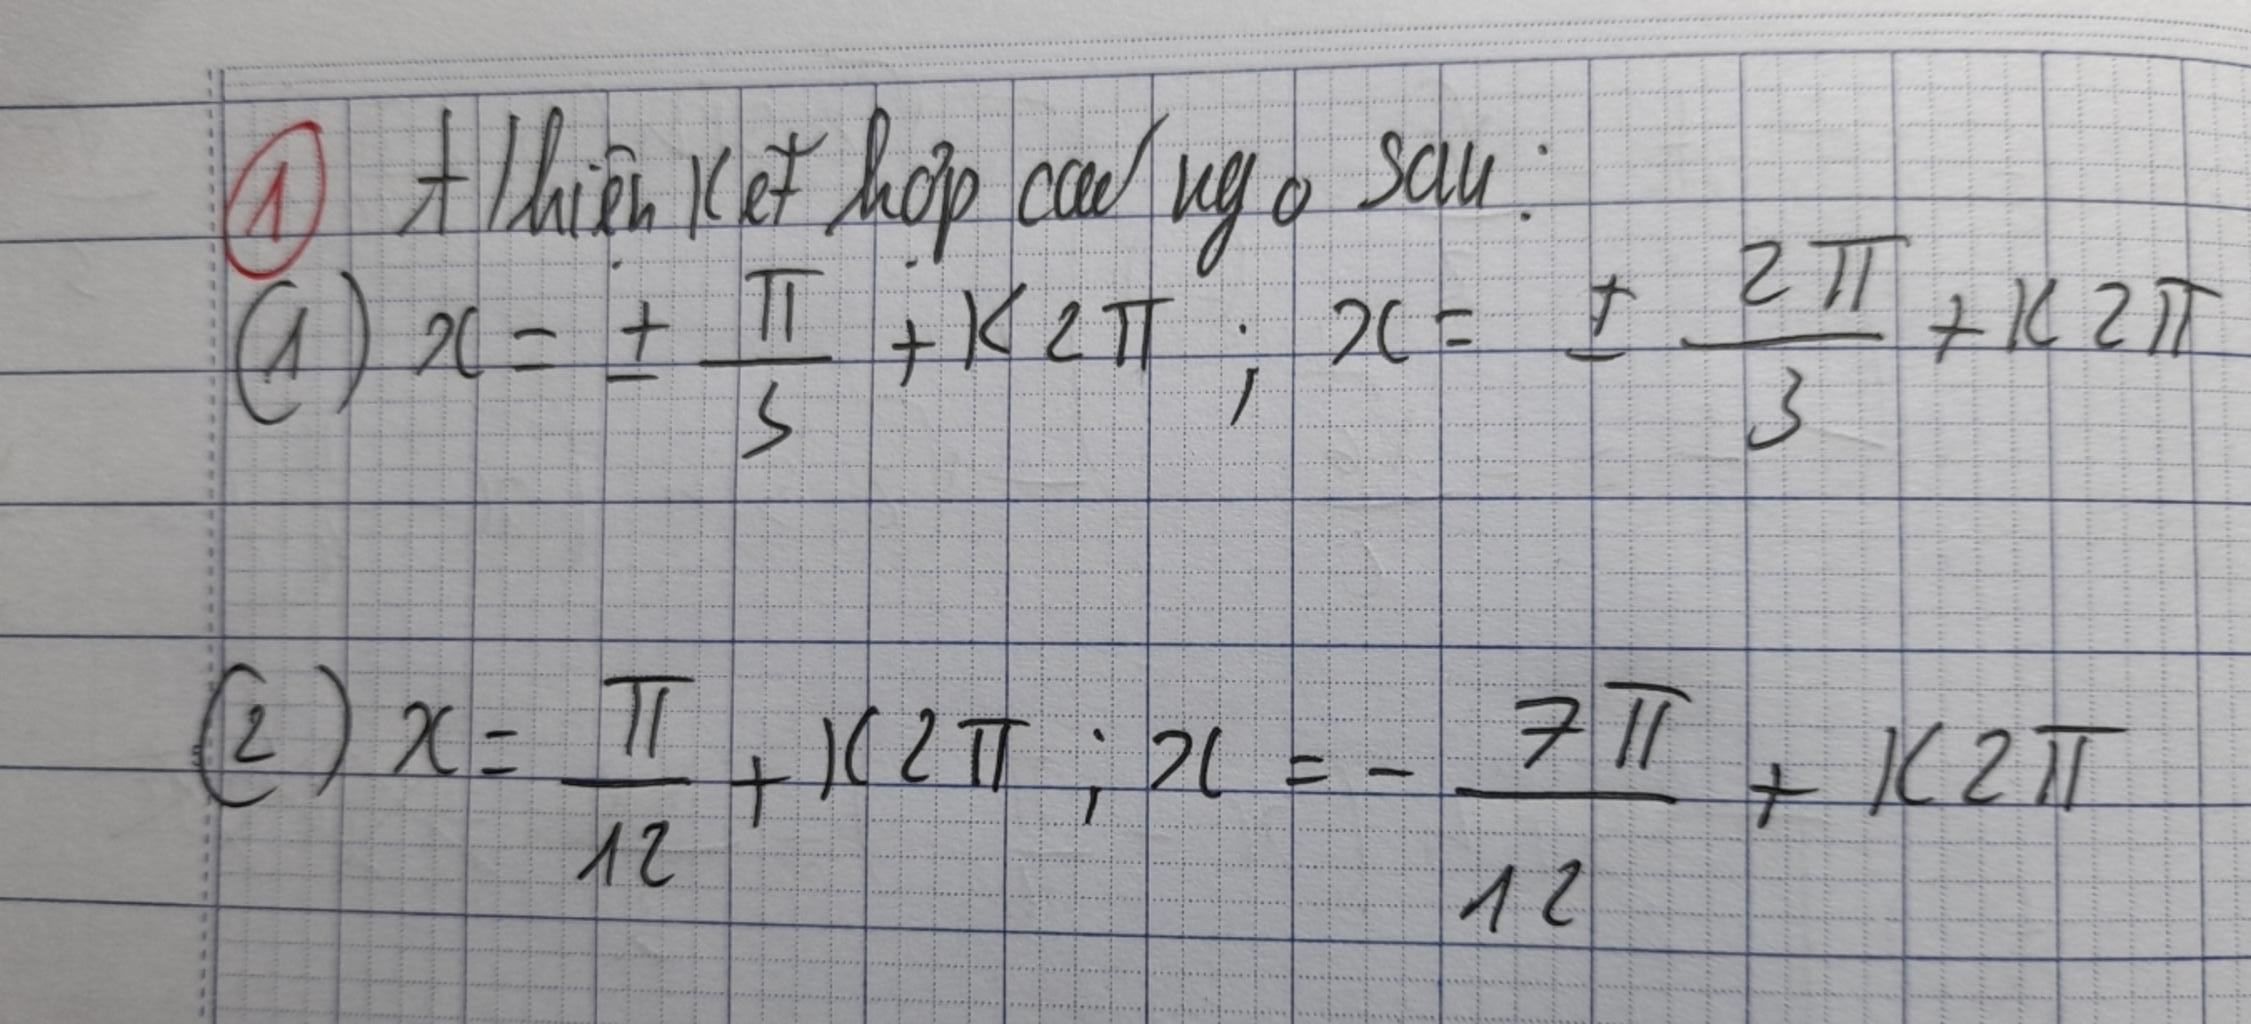 ① Thiện kết hợp các ng o sau:
(1) x = ± π/3 + K2π ; x = ± 2π/3 + K2π
(2) x = π/12 + K2π ; x = - 7π/12 + K2π